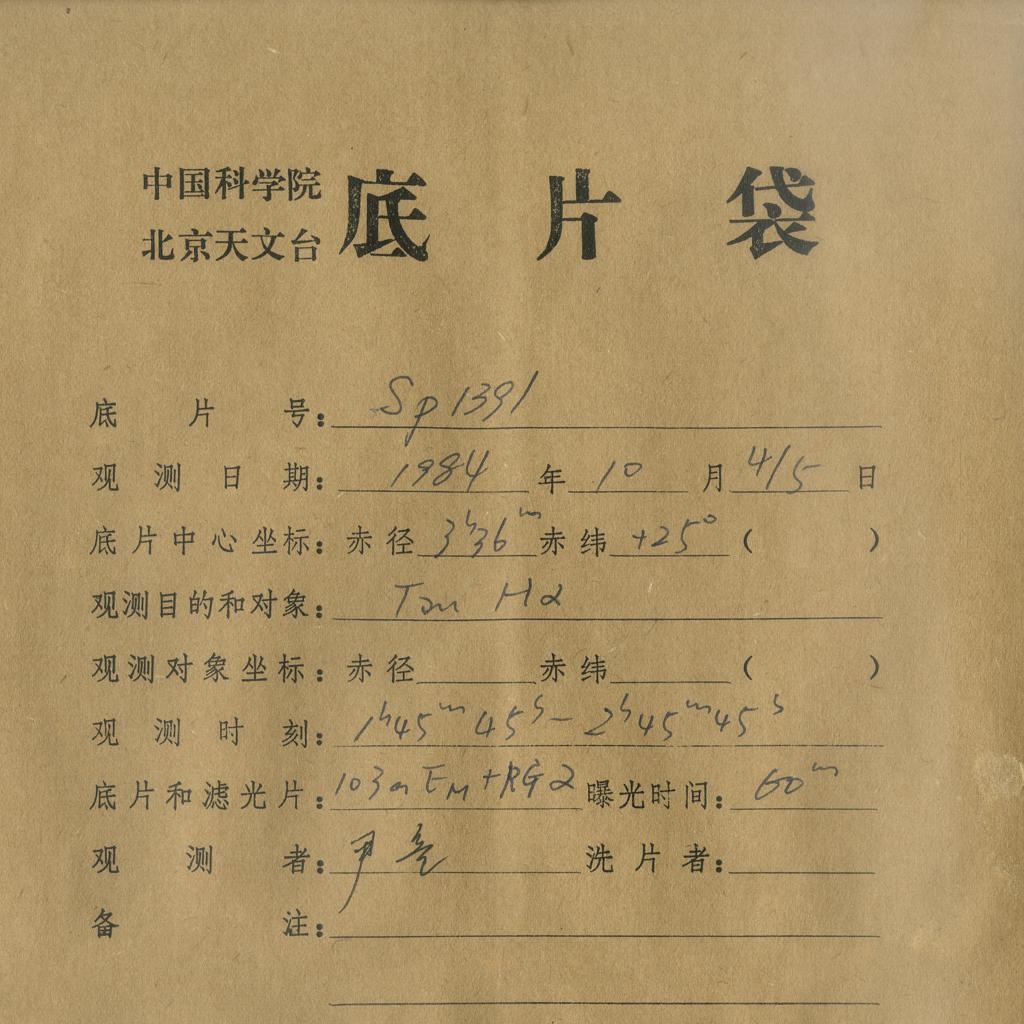 中国科学院
北京天文台 底片袋
底片号：Sp 1391
观测日期：1984年10月4/5日
底片中心坐标：赤径 3h36m 赤纬 +25° （ ）
观测目的和对象：Tau Hα
观测对象坐标：赤径 赤纬 （ ）
观测时刻：1h45m45s - 2h45m45s
底片和滤光片：103a EM+RG2 曝光时间：60m
观测者：尹亮 洗片者：
备注：